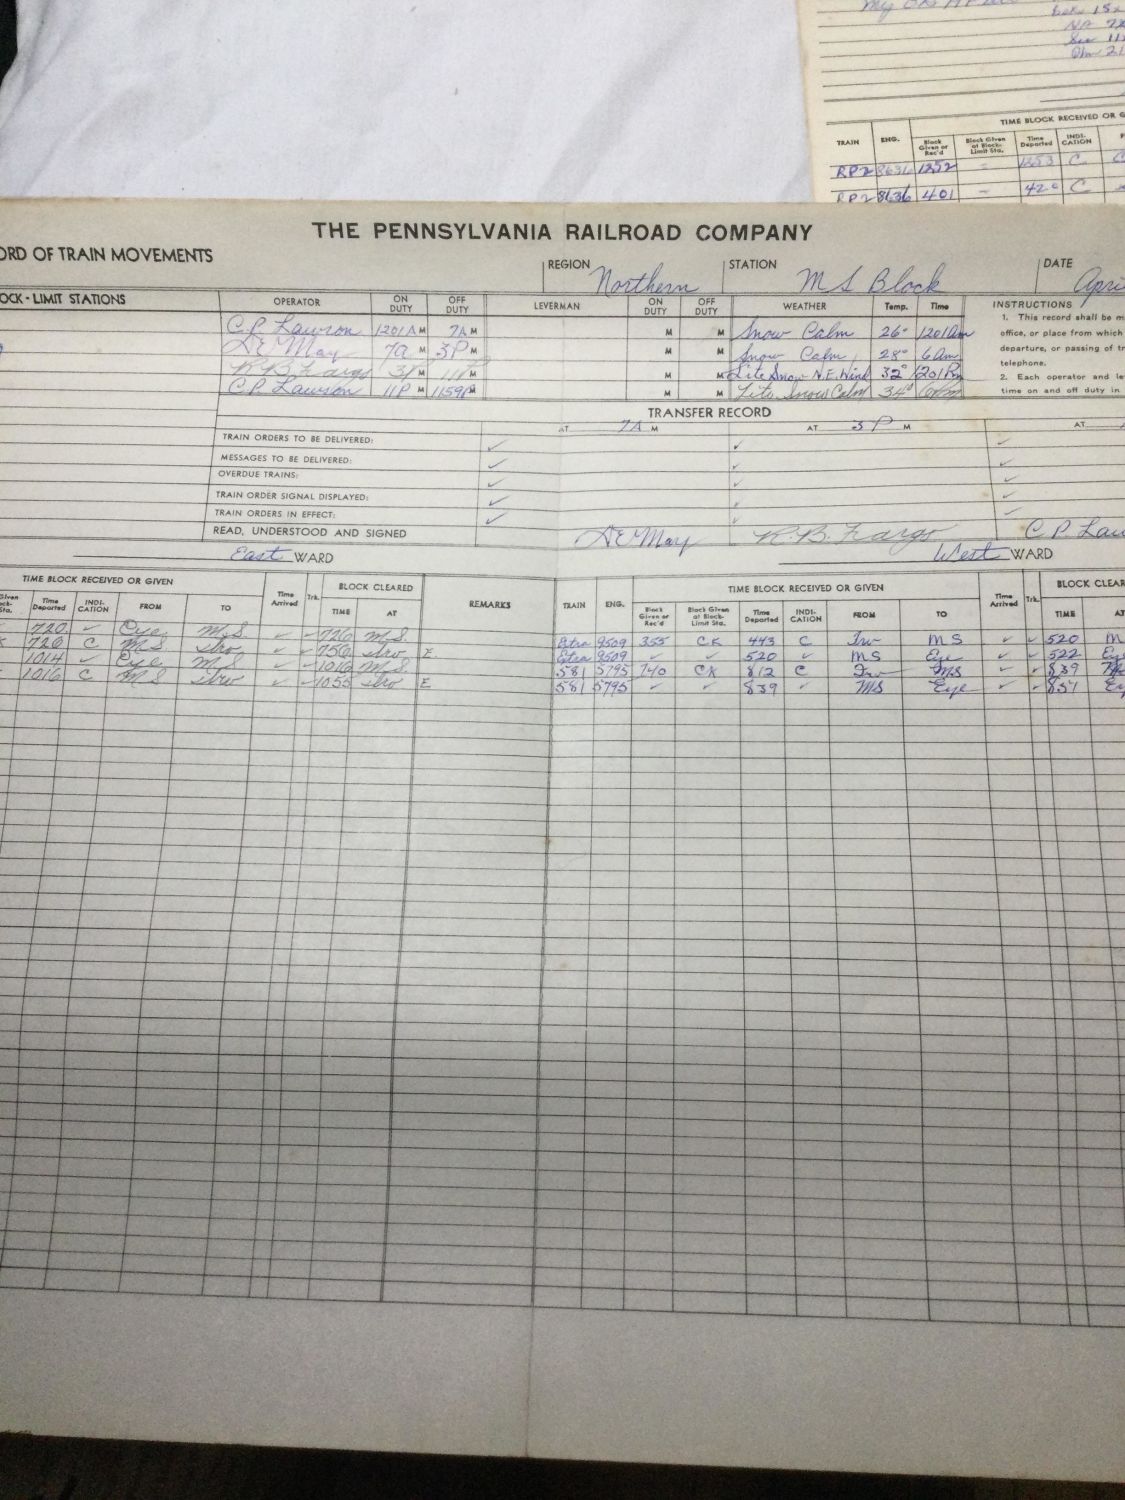 my
NA
TIME BLOCK RECEIVED OR G
TRAIN ENG. Block Given or Rec'd Block Given at Block-Limit Sta. Time Departed INDI-CATION
RP2 8631 1252 - 1253 C
RP2 8636 401 - 420 C
THE PENNSYLVANIA RAILROAD COMPANY
ORD OF TRAIN MOVEMENTS
REGION Northern STATION MS Block DATE Apri
OCK - LIMIT STATIONS OPERATOR ON DUTY OFF DUTY LEVERMAN ON DUTY OFF DUTY WEATHER Temp. Time INSTRUCTIONS
1. This record shall be m
C.P. Lawson 1201A M 7A M M M Snow Calm 26° 1201am office, or place from which
DE May 7a M 3P M M M Snow Calm 28° 6am departure, or passing of tr
telephone.
R.B. Fargo 3P M 11P M M M Lite Snow N.E. Wind 32° 1201Pm
2. Each operator and le
C.P. Lawson 11P M 1159P M M M Lite Snow Calm 34° 6Pm time on and off duty in
TRANSFER RECORD
AT 7A M AT 3P M AT
TRAIN ORDERS TO BE DELIVERED: ✓ ✓ ✓
MESSAGES TO BE DELIVERED: ✓ ✓ ✓
OVERDUE TRAINS: ✓ ✓ ✓
TRAIN ORDER SIGNAL DISPLAYED: ✓ ✓ ✓
TRAIN ORDERS IN EFFECT: ✓ ✓ ✓
READ, UNDERSTOOD AND SIGNED DE May R.B. Fargo C.P. Law
East WARD West WARD
TIME BLOCK RECEIVED OR GIVEN Time Arrived Trk. BLOCK CLEARED REMARKS TRAIN ENG. TIME BLOCK RECEIVED OR GIVEN Time Arrived Trk. BLOCK CLEAR
Given ock- Sta. Time Departed INDI-CATION FROM TO TIME AT Block Given or Rec'd Block Given at Block-Limit Sta. Time Departed INDI-CATION FROM TO TIME AT
720 ✓ Eye MS ✓ ✓ 726 MS Extra 9509 355 CK 443 C Irv MS ✓ ✓ 520 M
726 C MS Irv ✓ ✓ 756 Irv E Extra 9509 ✓ ✓ 520 ✓ MS Eye ✓ ✓ 522 Ey
1014 ✓ Eye MS ✓ ✓ 1016 MS 581 5795 740 CK 812 C Irv MS ✓ ✓ 839 M
1016 C MS Irv ✓ ✓ 1055 Irv E 581 5795 ✓ ✓ 839 ✓ MS Eye ✓ ✓ 851 Ey